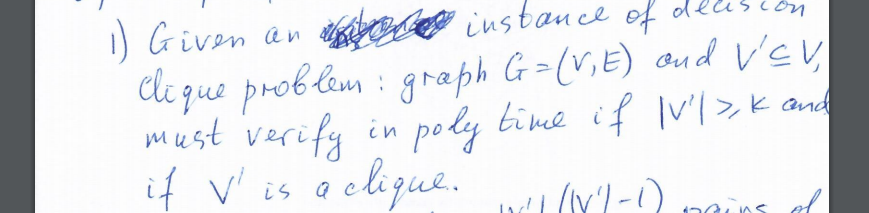 1) Given an instance of decision
clique problem: graph G=(V,E) and V'⊆V,
must verify in poly time if |V'|≥k and
if V' is a clique.
|V'|(|V'|-1) pairs of